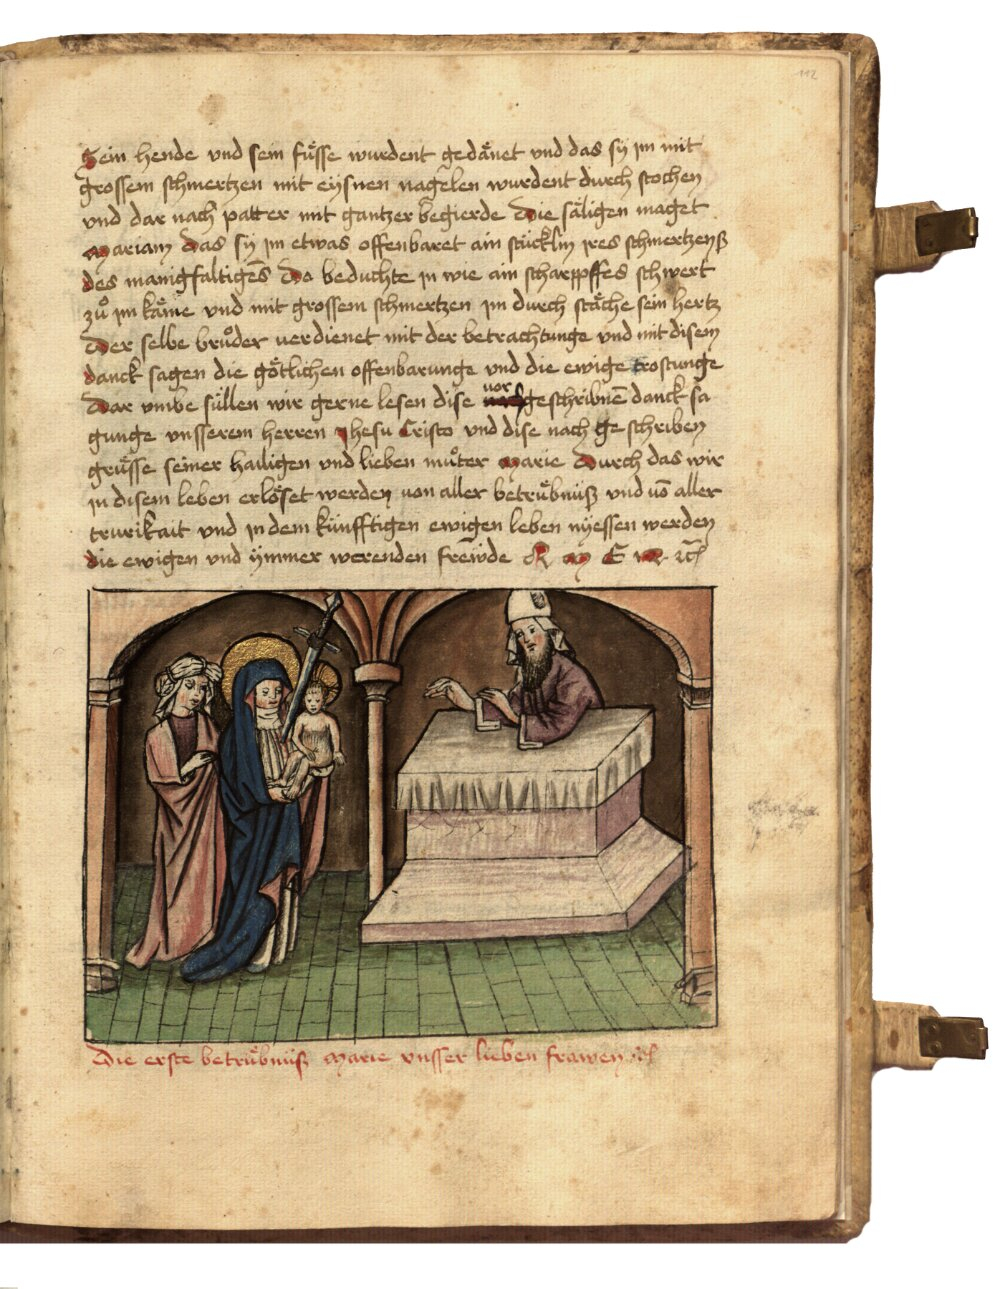 112
Sein hende vnd sein fu̍sse wurdent gedånet vnd das sy jm mit
grossem schmertzen mit eysnen nagelen wurdent durch stochen
vnd dar nach patter mit gantzer begierde Die såligen maget
Mariam das sy jm etwas offenbaret ain stücklin jres schmertzens
des manigfaltigēs Do beduchte jn wie ain scharpffes schwert
zů jm kåme vnd mit grossem schmertzen jm durch ståche sein hertz
Der selbe brůder verdienet mit der betrachtunge vnd mit disem
danck sagen die götlichen offenbarunge vnd die ewige trostunge
Dar vmbe süllen wir gerne lesen dise vor geschribnē danck sa
gunge vnsserem herren Jhesu Cristo vnd dise nach geschriben
grüsse seiner hailigen vnd lieben můter Marie Durch das wir
jn disem leben erlöset werden von aller betrübnüß vnd vō aller
trurikait vnd jn dem künfftigen ewigen leben nyessen werden
die ewigen vnd ymmer werenden frewde
Die erste betrübnüß Marie vnsser lieben frawen